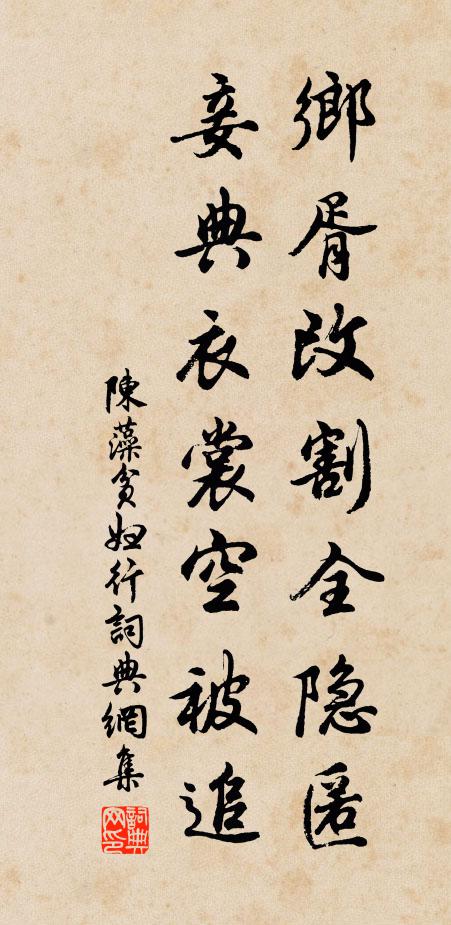 鄉胥改割全隐匿
妾典衣裳空被追
陳藻貧婦行詞典網集
詞典
网印